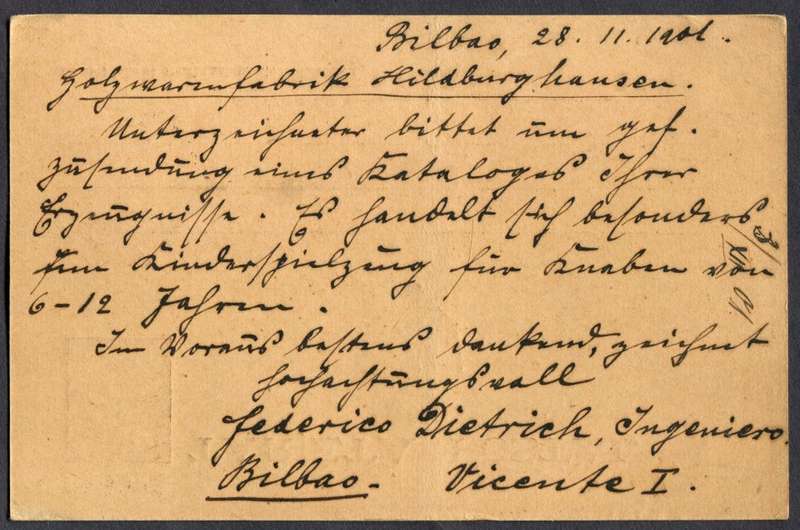 Bilbao, 28. 11. 1901.
Holzwarenfabrik Hildburghausen.
Unterzeichneter bittet um gef.
Zusendung eines Kataloges Ihrer
Erzeugnisse. Es handelt sich besonders
um Kinderspielzeug für Knaben von
6-12 Jahren.
Im Voraus bestens dankend, zeichnet
hochachtungsvoll
Federico Dietrich, Ingeniero.
Bilbao. Vicente I.